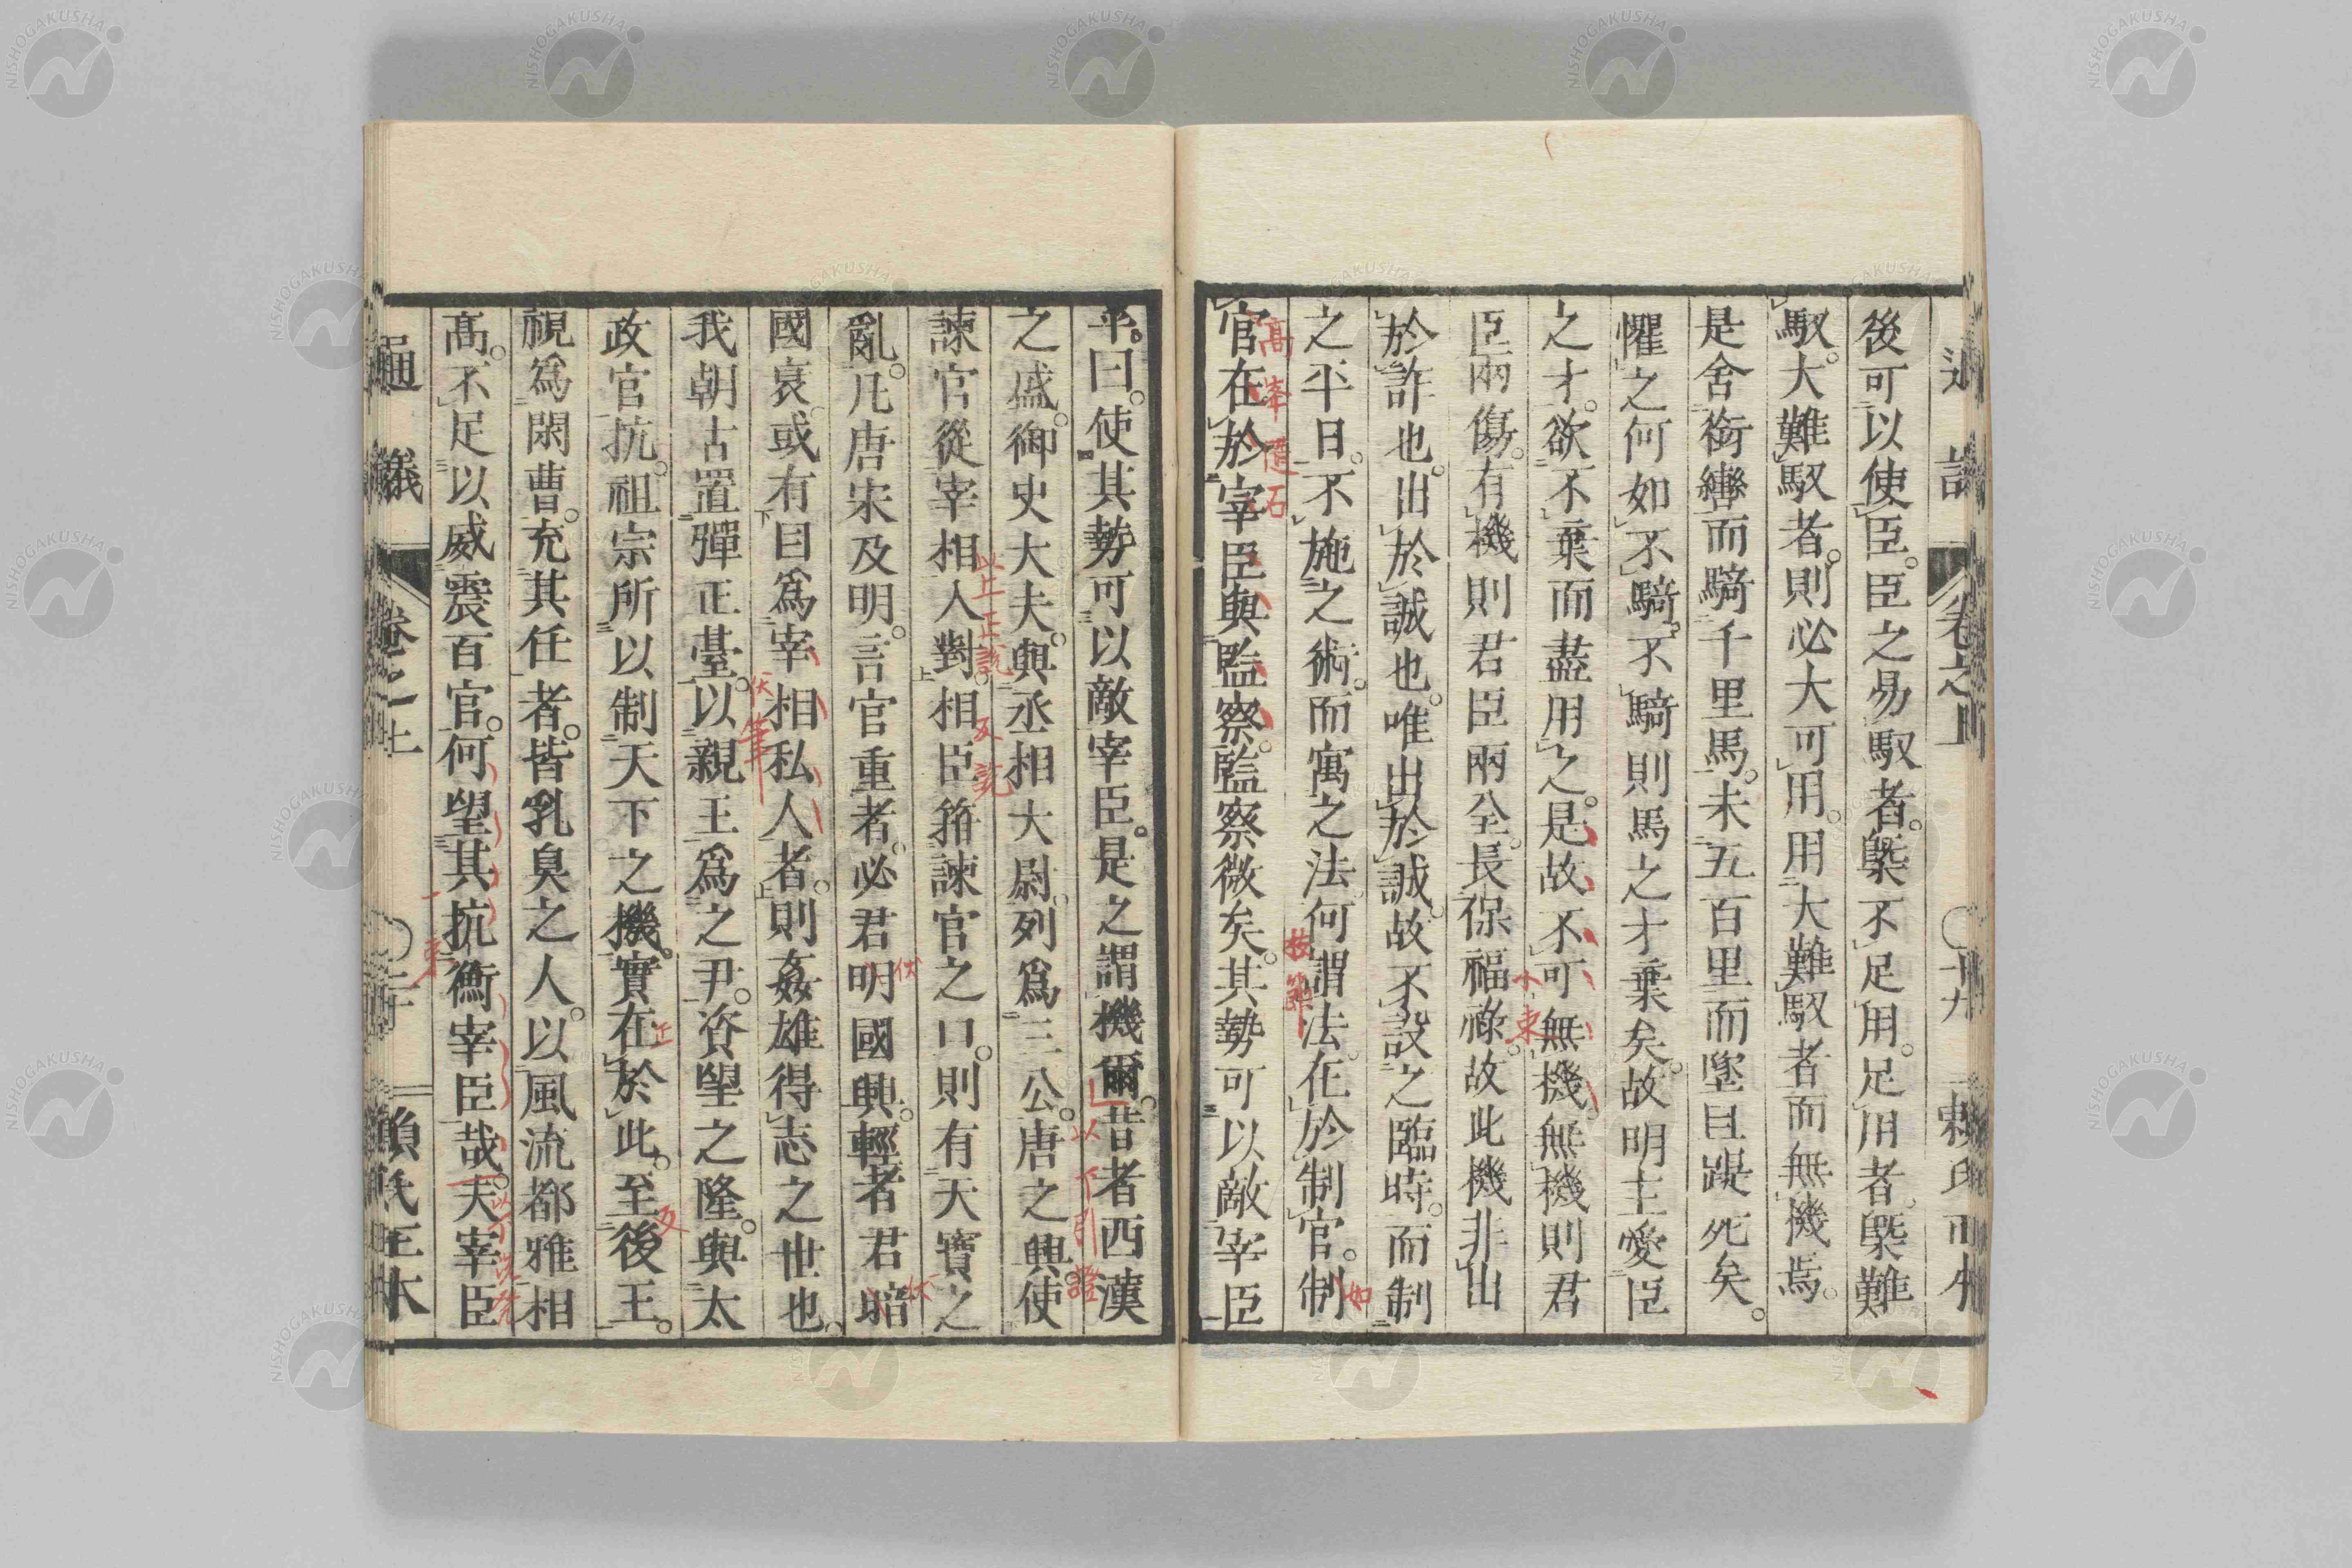 後可以使臣。臣之易馭者。槩不足用。足用者。槩難
馭。大難馭者。則必大可用。用大難馭者而無機焉。
是舍銜轡而騎千里馬。未五百里而墜且踶死矣。
懼之何如不騎。不騎則馬之才棄矣。故明主愛臣
之才。欲不棄而盡用之。是故不可無機。無機則君
臣兩傷。有機則君臣兩全。長保福祿。故此機非出
於詐也。出於誠也。唯出於誠。故不設之臨時。而制
之平日。不施之術。而寓之法。何謂法。在於制官。制
官在於宰臣與監察。監察微矣。其勢可以敵宰臣
乎。曰。使其勢可以敵宰臣。是之謂機爾。昔者西漢
之盛。御史大夫。與丞相大尉。列爲三公。唐之興。使
諫官從宰相入對。相臣箝諫官之口。則有天寶之
亂。凡唐宋及明。言官重者。必君明國興。輕者君暗
國衰。或有目爲宰相私人者。則姦雄得志之世也。
我朝古置彈正臺。以親王爲之尹。資望之隆。與太
政官抗。祖宗所以制天下之機。實在於此。至後王。
視爲閑曹。充其任者。皆乳臭之人。以風流都雅相
高。不足以威震百官。何望其抗衡宰臣哉。夫宰臣
通議
卷之上
賴氏正本
高峯墮石
枝節
小束
如
以下引證
以上正說
反說
伏
伏
伏筆
正
反
一束
NISHOGAKUSHA